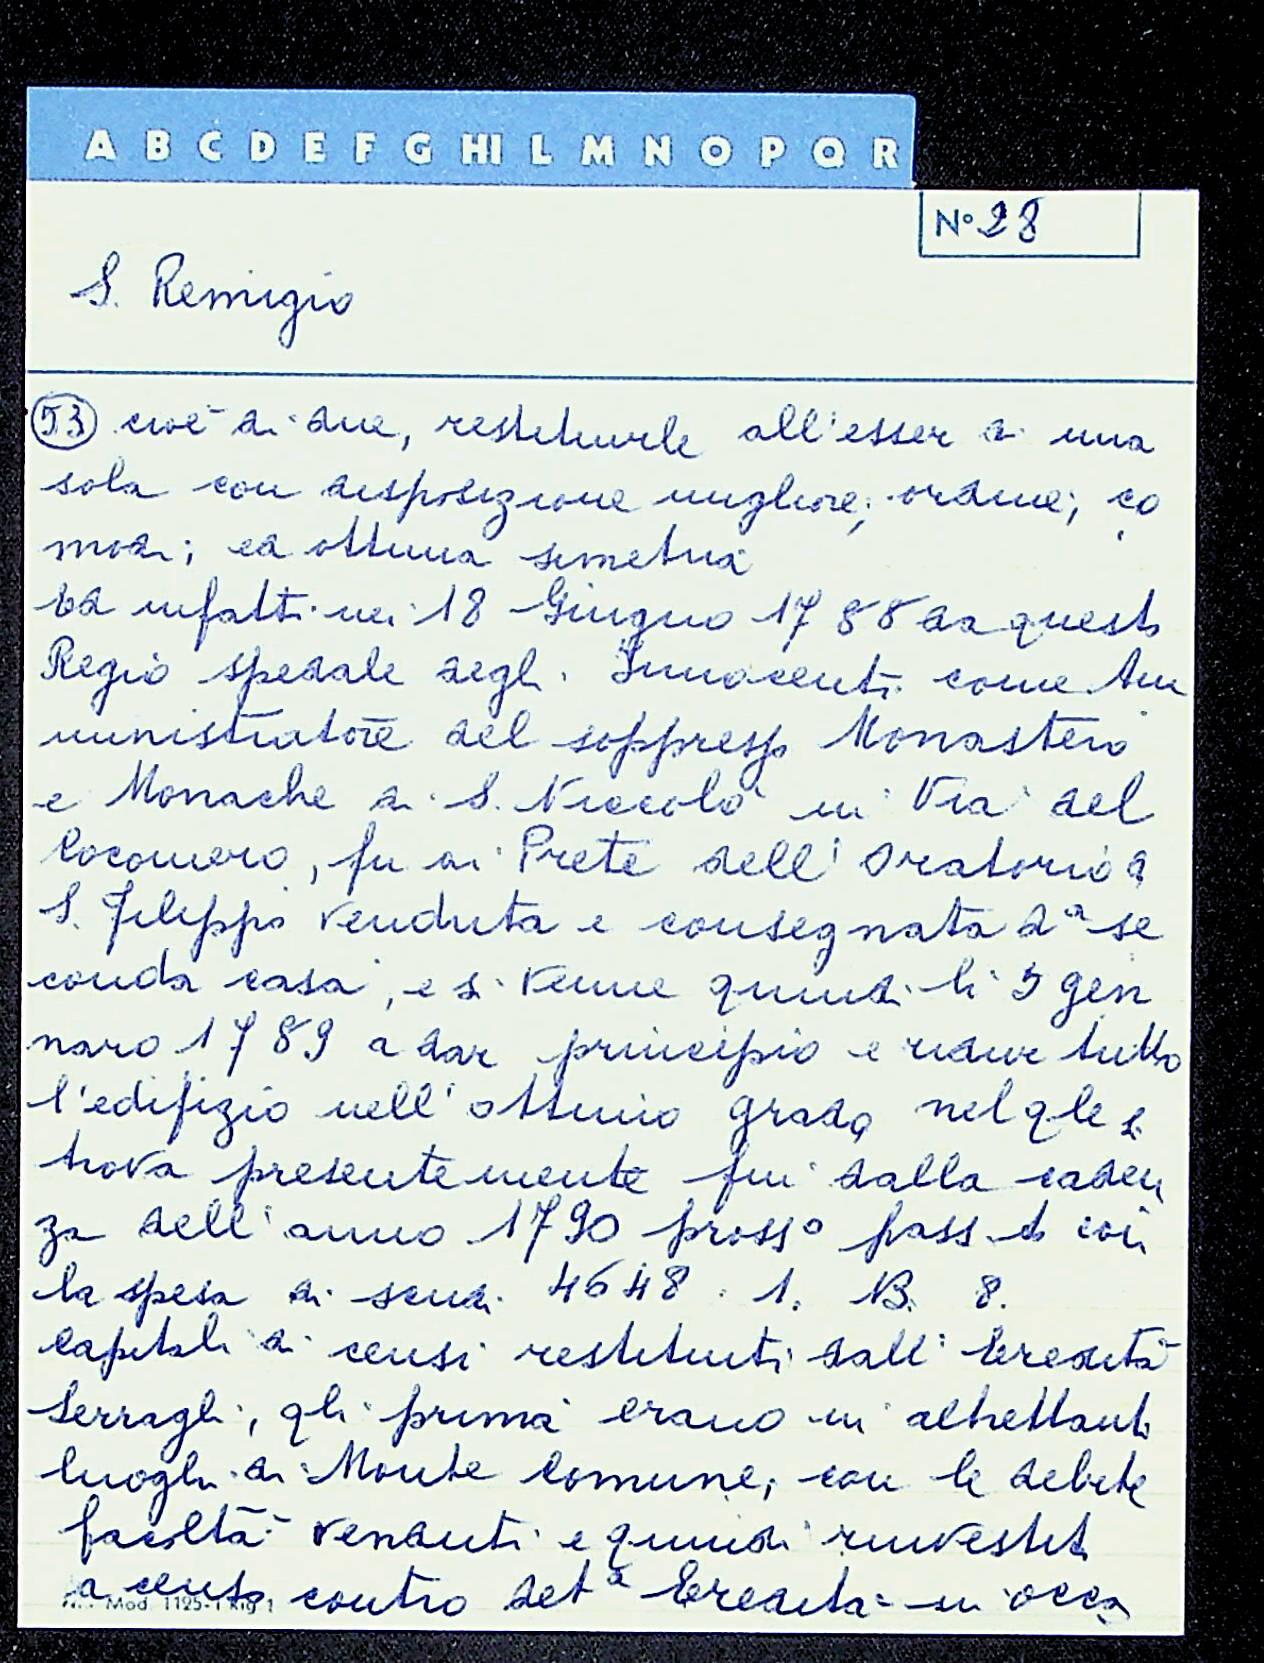 A B C D E F G HI L M N O P Q R
N° 28
S. Remigio
53 cioè di due, restituirle all'esser di una
sola con disposizione migliore; ordine; co
modi; ed ottima simetria
Ed infatti nei 18 Giugno 1788 da questo
Regio spedale degli Innocenti come Am
ministratore del soppresso Monastero
e Monache di S. Niccolò in Via del
Cocomero, fu ai Prete dell'Oratorio di
S. Filippo venduta e consegnata dª se
conda casa, e si venne quindi li 5 gen
naro 1789 a dar principio e ridur tutto
l'edifizio nell'ottimo grado nel qle si
trova presentemente fin dalla caden
za dell'anno 1790 prossº pass.to con
la spesa di scudi 4648. 1. 13. 8.
Capitali di censi restituiti dall'Eredità
Serragli, qli prima erano in altrettanti
luoghi di Monte Comune, con le debite
facoltà venduti e quindi rinvestiti
a censo contro detª Eredità in occa
Mod. 1125-1 Rig 1